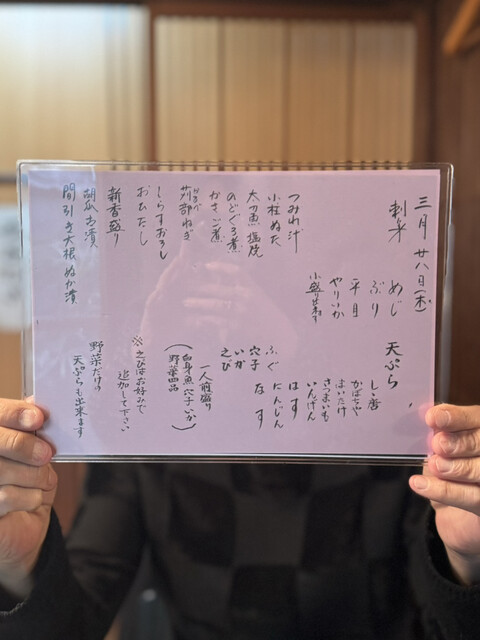 三月廿八日(木)
刺身
めじ
ぶり
平目
やりいか
小盛り出来ます
つみれ汁
小柱ぬた
太刀魚塩焼
のどぐろ煮
かさご煮
苅部ねぎ
しらすおろし
おひたし
新香盛り
胡瓜お漬
間引き大根ぬか漬
天ぷら
しゝ唐
かぼちゃ
まいたけ
さつまいも
いんげん
はす
にんじん
なす
ふぐ
穴子
いか
えび
一人前盛り
(白身魚 穴子 いか
野菜四品)
※えびはお好みで
追加して下さい
野菜だけの
天ぷらも出来ます